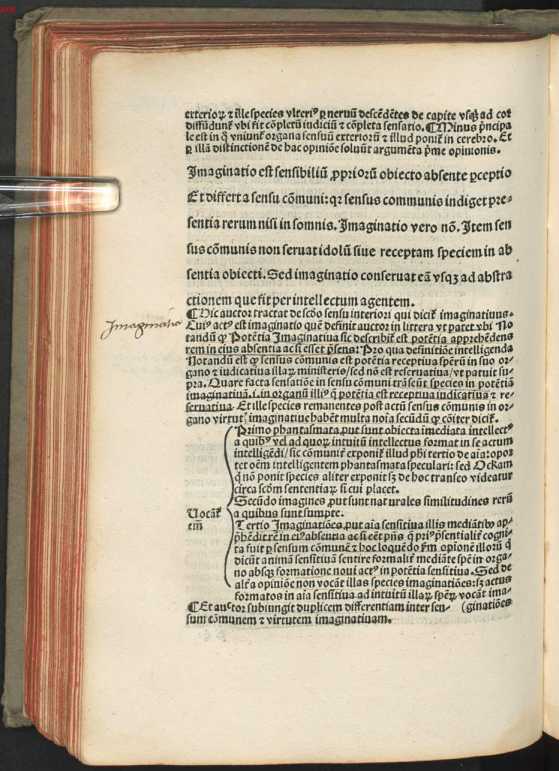 exterioꝝ ⁊ ille species vlteriꝰ ꝑ neruū descēdētes de capite vsqꝫ ad cor
diffūdunt̄ vbi fit cōpletū iudiciū ⁊ cōpleta sensatio. ¶Minus pͥncipa
le est in qͦ vniunt̄ organa sensuū exterioꝝ ⁊ illud ponit̄ in cerebro. Et
ꝑ illā distinctionē de hac opinióe soluūt argumēta pͥme opinionis.
Imaginatio est sensibiliū ꝓprioꝝ obiecto absente ꝑceptio
Et differt a sensu cōmuni: qꝛ sensus communis indiget pre⸗
sentia rerum nisi in somnis. Imaginatio vero nō. Item sen
sus cōmunis non seruat idolū siue receptam speciem in ab
sentia obiecti. Sed imaginatio conseruat eā vsqꝫ ad abstra
ctionem que fit per intellectum agentem.
¶Hic auctor tractat de scd̄o sensu interiori qui dicit̄ imaginatiuus.
Cuiꝰ actꝰ est imaginatio quē definit auctor in littera vt patet. vbi No
tandū ꝙ Potētia Imaginatiua sic describit̄ est potētia apprehēdens
rem in eius absentia ac si esset p̄sens: Pro qua definitiōe intelligenda
Notandū est ꝙ sensus cōmunis est potētia receptiua sperū in suo or⸗
gano ⁊ iudicatiua illaꝝ ministerio/ sed nō est reseruatiua/ vt patuit su⸗
pra. Quare facta sensatiōe in sensu cōmuni trāseūt species in potētiā
imaginatiuā .i. in organū illiꝰ qͥ potētia est receptiua iudicatiua ⁊ re⸗
seruatiua. Et ille species remanentes post actū sensus cōmunis in or⸗
gano virtut̄ imaginatiue habēt multa noīa secūdū ꝙ cōiter dicit̄.
Imaginatio
Uocāt̄
em̄
Primo phantasmata, put sunt obiecta imediata intellectꝰ
a quibꝰ vel ad quoꝝ intuitū intellectus format in se actum
intelligēdi/ sic cōmunit̄ exponit̄ illud phi tertio de aīa: opor
tet oēm intelligentem phantasmata speculari: sed Ockam
qͥ nō ponit species aliter exponit sꝫ de hoc transeo videatur
circa scōm sententiaꝝ si cui placet.
Secūdo imagines, put sunt naturales similitudines rerū
a quibus sunt sumpte.
Tertio Imaginatiōes, put aīa sensitiua illis mediātibꝰ ap⸗
p̄hēdit rē in eiꝰ absentia ac si eēt p̄ns
ta fuit ꝑ sensum cōmunē ⁊ hoc loquēdo ẜm opionē illorū qͥ
dicūt animā sensitiuā sentire formalit̄ mediāte spē in orga⸗
no absqꝫ formatione noui actꝰ in potētia sensitiua. Sed de
alꝛa opiniōe non vocāt illas species imaginatiōes: sꝫ actus
formatos in aīa sensitiua ad intuitū illaꝝ sperꝝ vocāt ima⸗
¶Et auctor subiungit duplicem differentiam inter sen⸗ (ginatiōes
sum cōmunem ⁊ virtutem imaginatiuam.